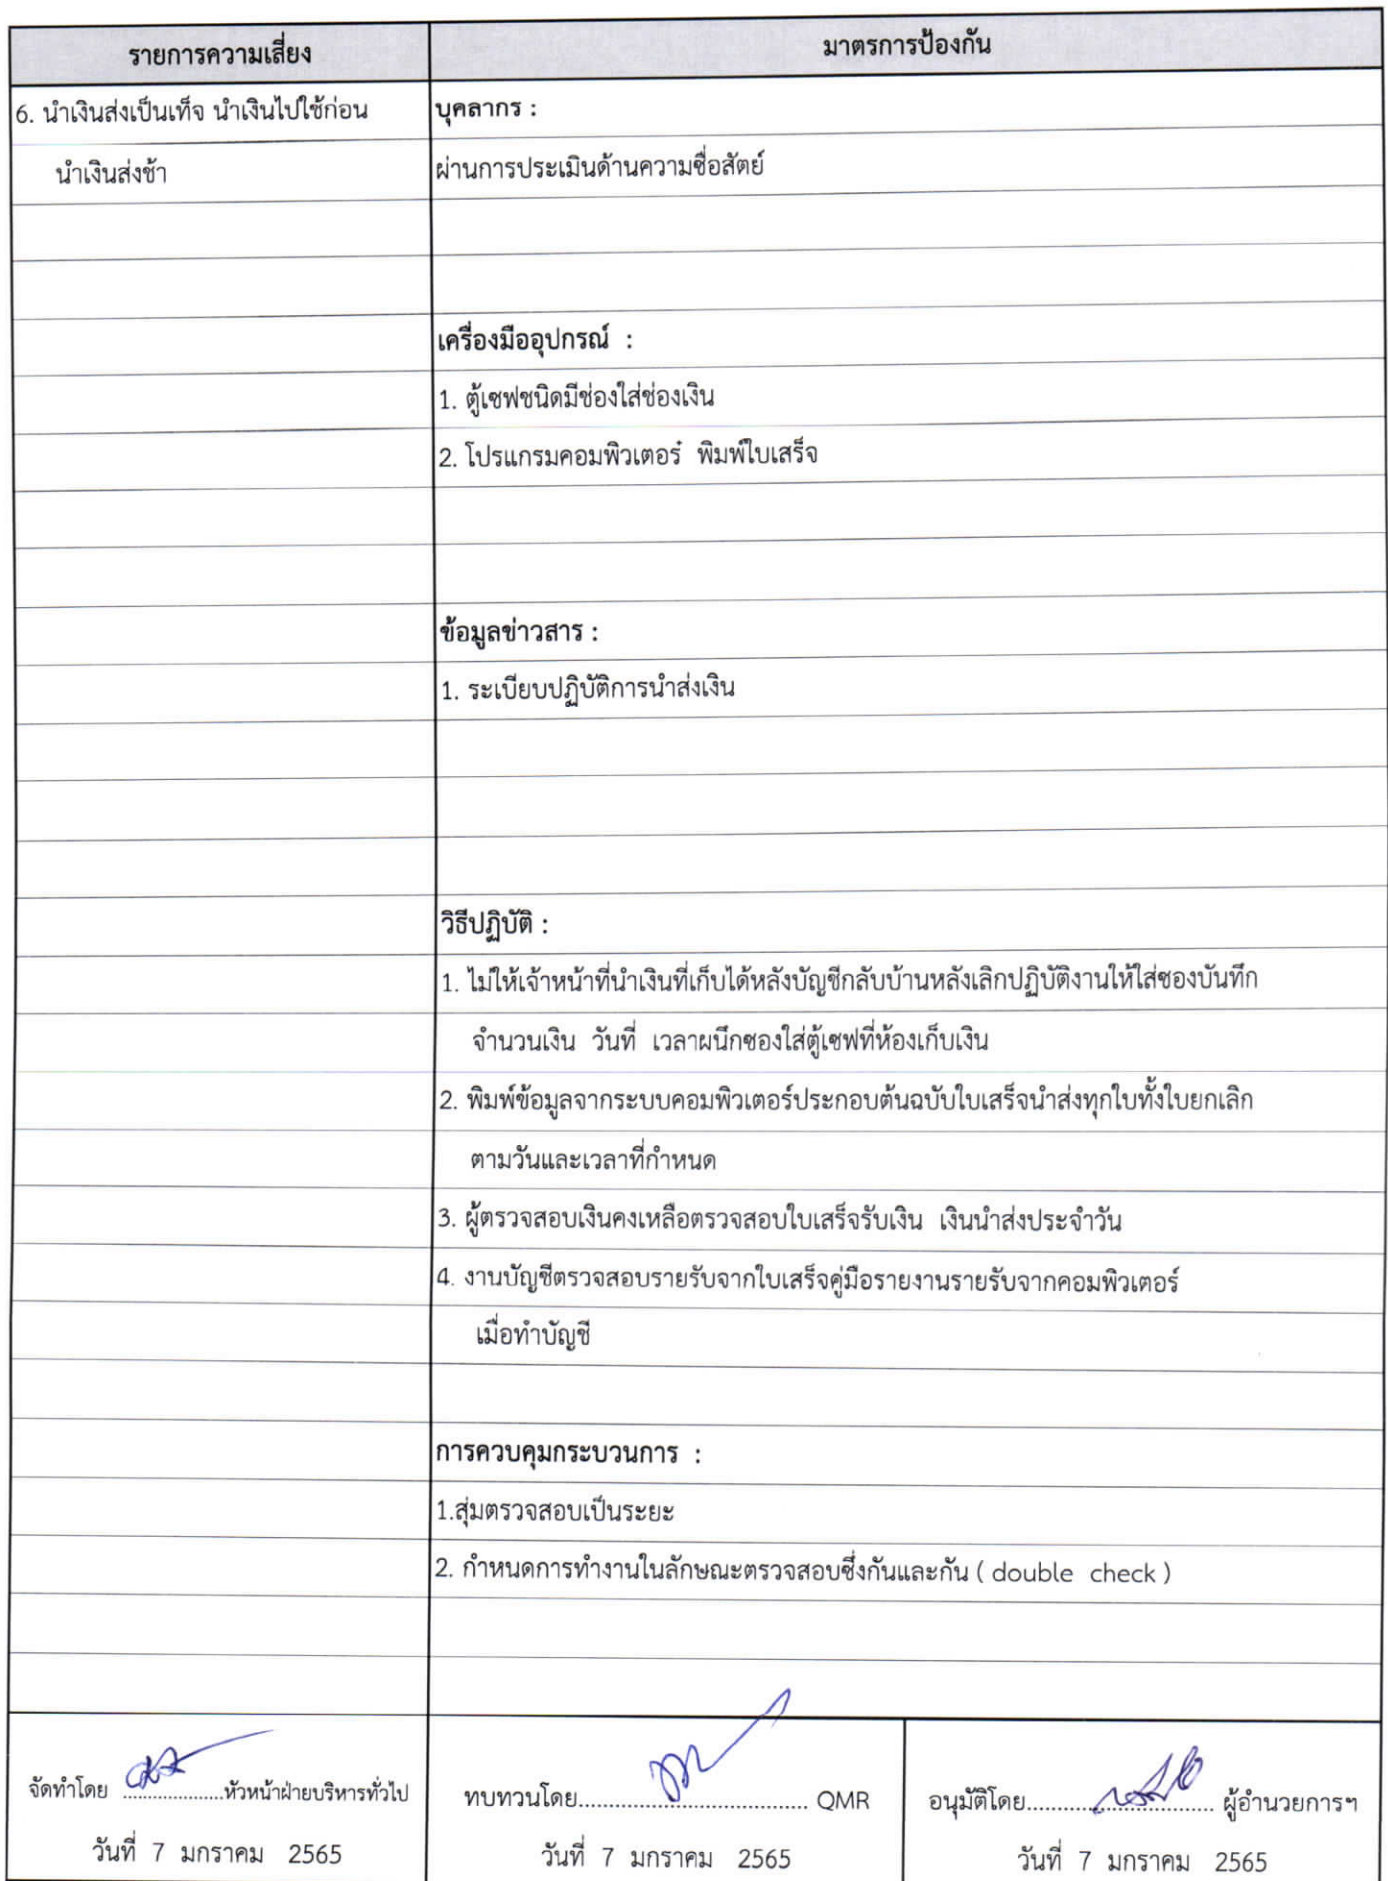 รายการความเสี่ยง
มาตรการป้องกัน
6. นำเงินส่งเป็นเท็จ นำเงินไปใช้ก่อน
บุคลากร :
นำเงินส่งช้า
ผ่านการประเมินด้านความซื่อสัตย์
เครื่องมืออุปกรณ์ :
1. ตู้เซฟชนิดมีช่องใส่ช่องเงิน
2. โปรแกรมคอมพิวเตอร์ พิมพ์ใบเสร็จ
ข้อมูลข่าวสาร :
1. ระเบียบปฏิบัติการนำส่งเงิน
วิธีปฏิบัติ :
1. ไม่ให้เจ้าหน้าที่นำเงินที่เก็บได้หลังบัญชีกลับบ้านหลังเลิกปฏิบัติงานให้ใส่ซองบันทึก
จำนวนเงิน วันที่ เวลาผนึกซองใส่ตู้เซฟที่ห้องเก็บเงิน
2. พิมพ์ข้อมูลจากระบบคอมพิวเตอร์ประกอบต้นฉบับใบเสร็จนำส่งทุกใบทั้งใบยกเลิก
ตามวันและเวลาที่กำหนด
3. ผู้ตรวจสอบเงินคงเหลือตรวจสอบใบเสร็จรับเงิน เงินนำส่งประจำวัน
4. งานบัญชีตรวจสอบรายรับจากใบเสร็จคู่มือรายงานรายรับจากคอมพิวเตอร์
เมื่อทำบัญชี
การควบคุมกระบวนการ :
1.สุ่มตรวจสอบเป็นระยะ
2. กำหนดการทำงานในลักษณะตรวจสอบซึ่งกันและกัน ( double check )
จัดทำโดย ..................หัวหน้าฝ่ายบริหารทั่วไป
วันที่ 7 มกราคม 2565
ทบทวนโดย.................................. QMR
วันที่ 7 มกราคม 2565
อนุมัติโดย........................... ผู้อำนวยการฯ
วันที่ 7 มกราคม 2565